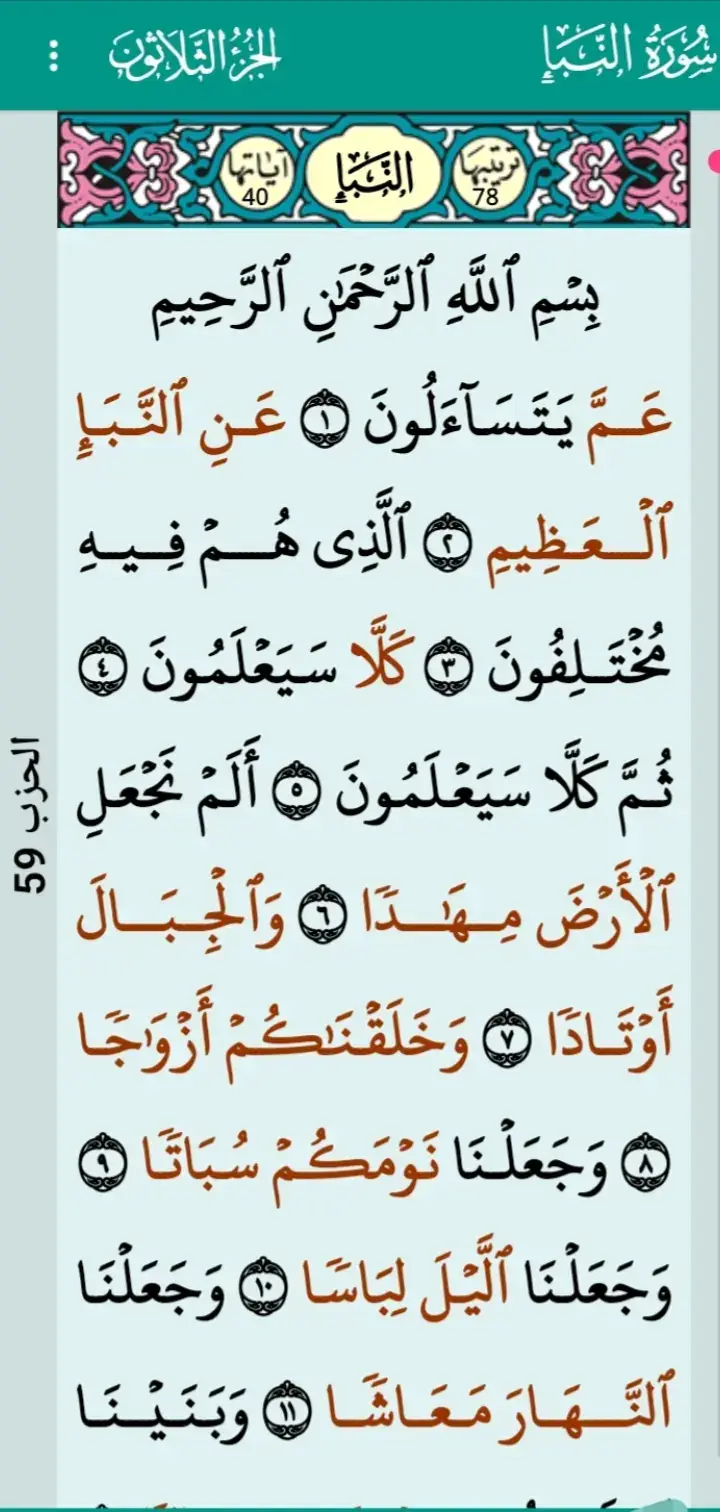 سُورَةُ النَّبَإِ
الجُزْءُ الثَّلَاثُونَ
تَرْتِيبُهَا 78
النَّبَإِ
آيَاتُهَا 40
بِسْمِ ٱللَّهِ ٱلرَّحْمَٰنِ ٱلرَّحِيمِ
عَمَّ يَتَسَآءَلُونَ ١ عَنِ ٱلنَّبَإِ
ٱلْعَظِيمِ ٢ ٱلَّذِى هُمْ فِيهِ
مُخْتَلِفُونَ ٣ كَلَّا سَيَعْلَمُونَ ٤
ثُمَّ كَلَّا سَيَعْلَمُونَ ٥ أَلَمْ نَجْعَلِ
ٱلْأَرْضَ مِهَٰدًا ٦ وَٱلْجِبَالَ
أَوْتَادًا ٧ وَخَلَقْنَٰكُمْ أَزْوَٰجًا
٨ وَجَعَلْنَا نَوْمَكُمْ سُبَاتًا ٩
وَجَعَلْنَا ٱلَّيْلَ لِبَاسًا ١٠ وَجَعَلْنَا
ٱلنَّهَارَ مَعَاشًا ١١ وَبَنَيْنَا
الحزب 59